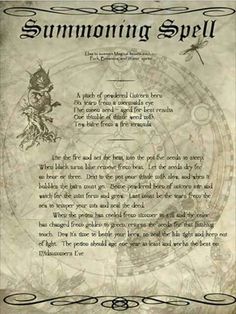 Summoning Spell
Use to summon Magical beasts such
A pinch of powdered Unicorn horn
Six tears from a mermaids eye
Five moon seed - aged for best results
One thimble of thistle weed milk
Ten hairs from a fire
Lite the fire and set the heat, into the pot five seeds to steep.
When black turns blue remove from heat. Let the seeds dry for
an hour or three. Next to the pot pour thistle milk slow, and when it
bubbles the hairs must go. Shake powdered horn of unicorn in and
watch for the mist form and grow. Last must be the tears from the
sea to temper your mix and seal the deed.
When the potion has cooled from simmer to still and the color
has changed from golden to green, return the seeds for that finishing
touch. Now it's time to bottle your brew, so seal the lid tight and keep out
of light. The potion should age one year at least and works the best on
Midsummers Eve